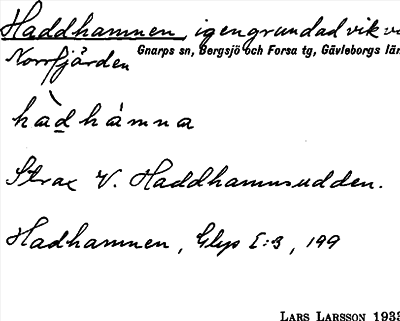 Haddhamnen, igengrundad vik v
Gnarps sn, Bergsjö och Forsa tg, Gävleborgs län
Norrfjärden
hàd hámna
Strax V. Haddhamnsudden.
Hadhamnen, Glys E:3, 199
LARS LARSSON 1933